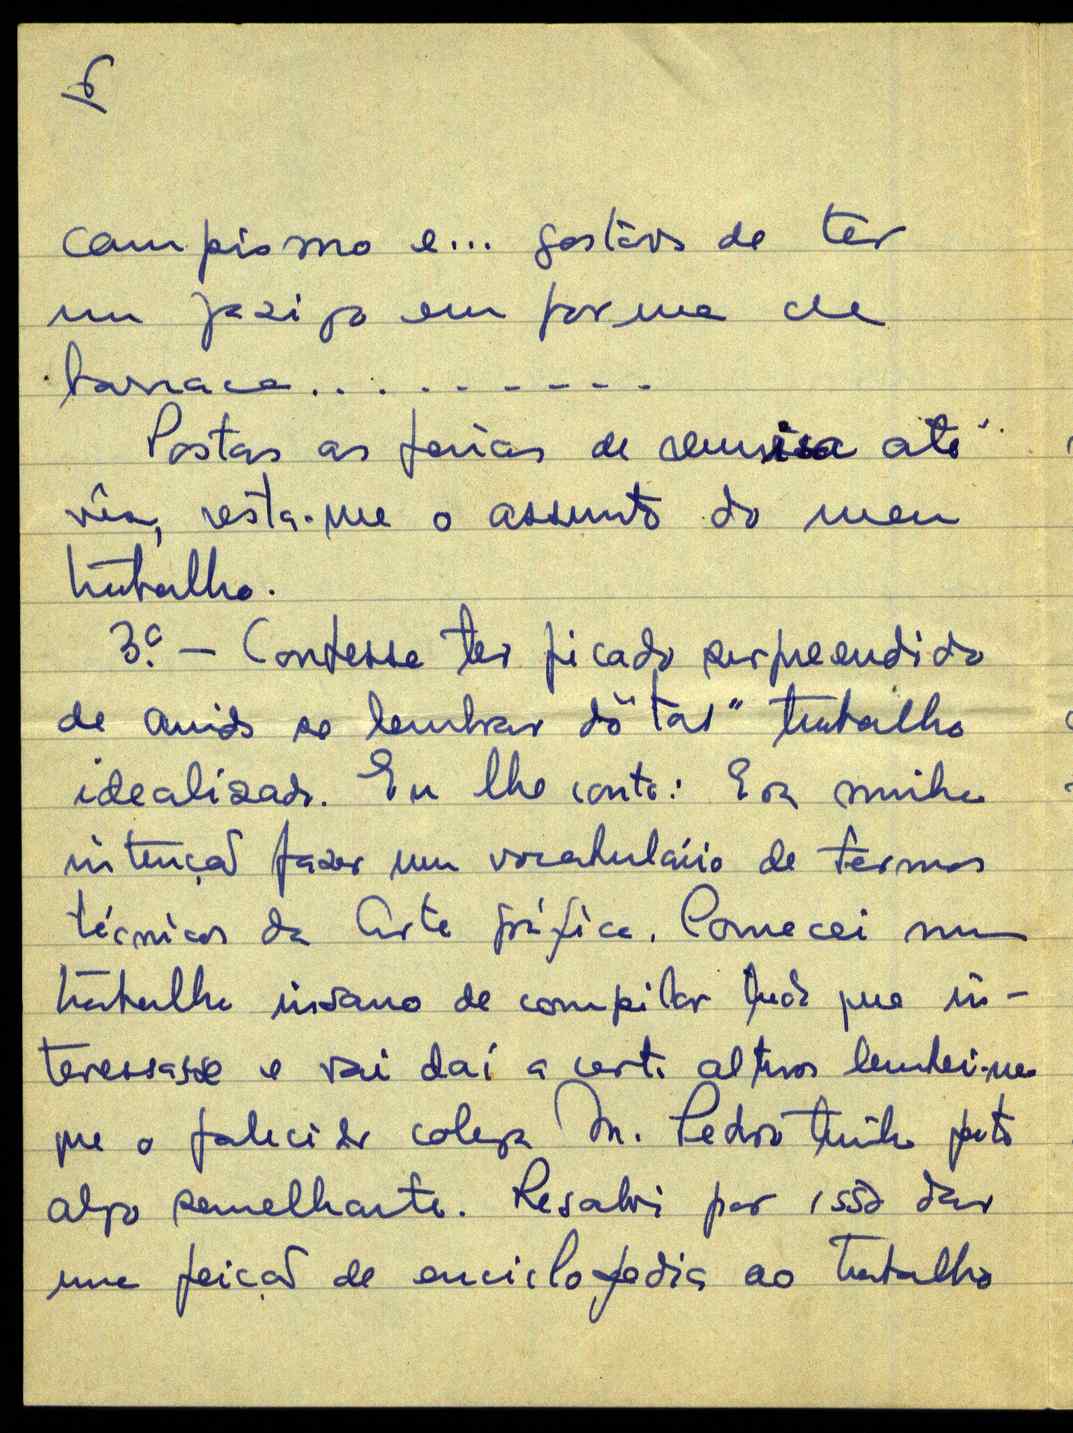 6
campismo e... gostava de ter
um jazigo em forma de
barraca.........
Postas as férias de remissa até
vêr, resta-me o assunto do meu
trabalho.
3.º — Confesso ter ficado surpreendido
de ainda se lembrar do "tal" trabalho
idealizado. Eu lhe conto: Era minha
intenção fazer um vocabulário de termos
técnicos da Arte gráfica. Comecei num
trabalho insano de compilar tudo que in-
teressasse e vai daí a certa altura lembrei-me
que o falecido colega M. Pedro tinha feito
algo semelhante. Resolvi por isso dar
uma feição de enciclopedia ao trabalho